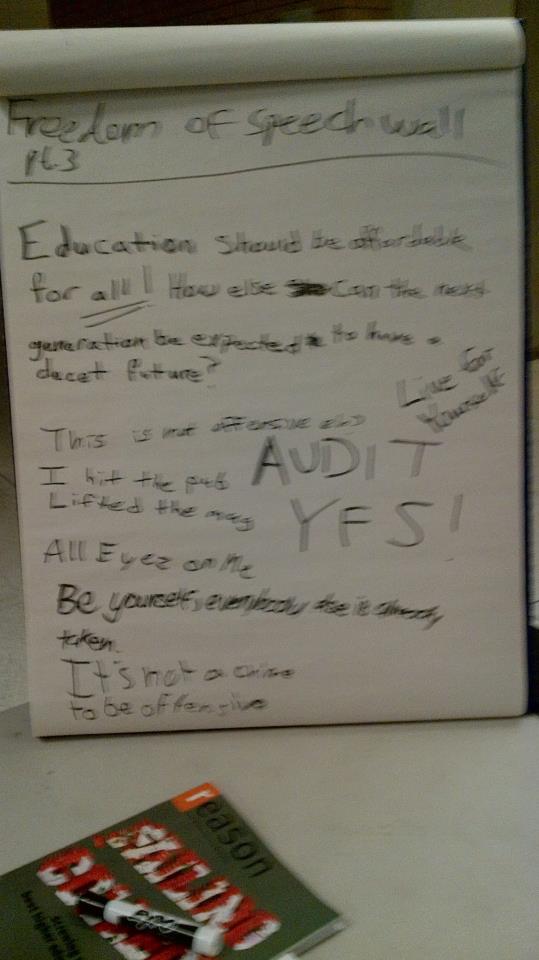 Freedom of speech wall
pt.3
Education should be affordable
for all! How else can the next
generation be expected to have a
decet future?
Live for
Yourself
This is not offensive
I hit the pub
Lifted the mug
AUDIT
YFS!
All Eyez on Me
Be yourself, everybody else is already
taken.
It's not a crime
to be offensive
reason